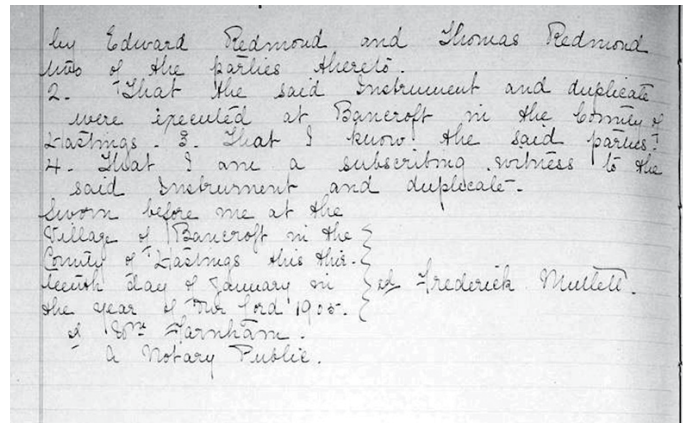 by Edward Redmond and Thomas Redmond
two of the parties thereto.
2. That the said Instrument and duplicate
were executed at Bancroft in the County of
Hastings. 3. That I know the said parties.
4. That I am a subscribing witness to the
said Instrument and duplicate.
Sworn before me at the
Village of Bancroft in the
County of Hastings this thir-
teenth day of January in
the year of Our Lord 1905.
Frederick Mullett.
Wm Farnham.
A Notary Public.